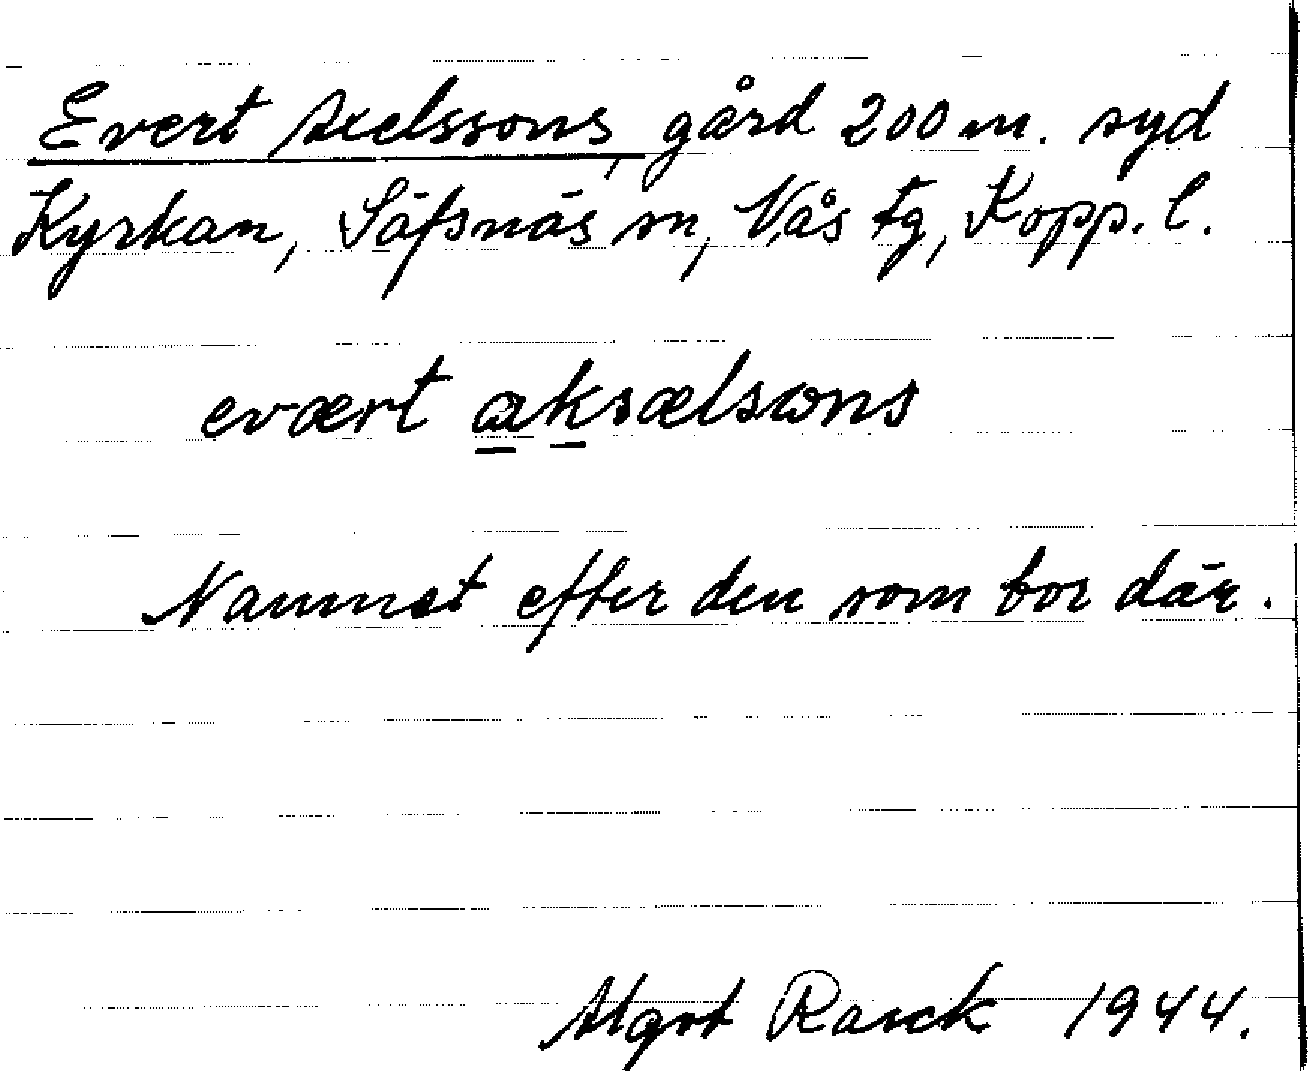 Evert Axelssons, gård 200 m. syd
Kyrkan, Säfsnäs sn, Nås tg, Kopp. l.
evært aksælsons
Namnet efter den som bor där.
Algot Rasck 1944.